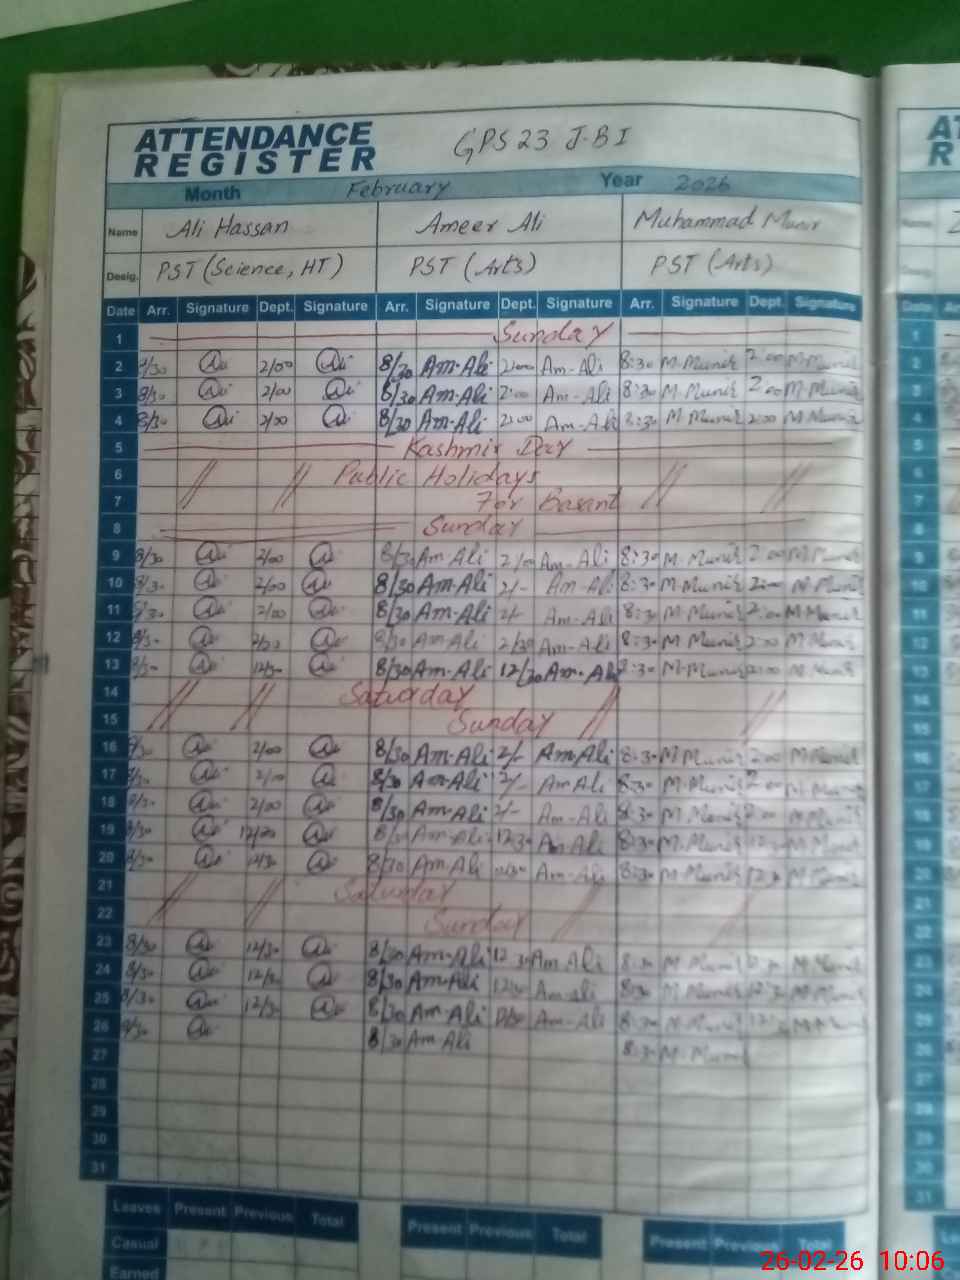 ATTENDANCE
REGISTER
GPS 23 J-B I
Month February Year 2026
Name Ali Hassan Ameer Ali Muhammad Munir
Desig. PST (Science, HT) PST (Arts) PST (Arts)
Date Arr. Signature Dept. Signature Arr. Signature Dept. Signature Arr. Signature Dept. Signature
1 Sunday
2 8/30 Ali 2/00 Ali 8/30 Am-Ali 2:00 Am-Ali 8:30 M.Munir 2:00 M.Munir
3 8/30 Ali 2/00 Ali 8/30 Am-Ali 2:00 Am-Ali 8:30 M.Munir 2:00 M.Munir
4 8/30 Ali 2/00 Ali 8/30 Am-Ali 2:00 Am-Ali 8:30 M.Munir 2:00 M.Munir
5 Kashmir Day
6 Public Holidays
7 For Basant
8 Sunday
9 8/30 Ali 2/00 Ali 8/30 Am-Ali 2/00 Am-Ali 8:30 M.Munir 2:00 M.Munir
10 8/30 Ali 2/00 Ali 8/30 Am-Ali 2/- Am-Ali 8:30 M.Munir 2:00 M.Munir
11 8/30 Ali 2/00 Ali 8/30 Am-Ali 2/- Am-Ali 8:30 M.Munir 2:00 M.Munir
12 8/30 Ali Ali 8/30 Am-Ali 2/30 Am-Ali 8:30 M.Munir M.Munir
13 8/30 Ali 12/30 Ali 8/30 Am-Ali 12/30 Am-Ali 8:30 M.Munir M.Munir
14 Saturday
15 Sunday
16 8/30 Ali 2/00 Ali 8/30 Am-Ali 2/- Am-Ali 8:30 M.Munir 2:00 M.Munir
17 8/30 Ali 2/00 Ali 8/30 Am-Ali 2/- Am-Ali 8:30 M.Munir 2:00 M.Munir
18 8/30 Ali 2/00 Ali 8/30 Am-Ali 2/- Am-Ali 8:30 M.Munir 2:00 M.Munir
19 8/30 Ali Ali 8/30 Am-Ali 12:30 Am-Ali 8:30 M.Munir 12:30 M.Munir
20 8/30 Ali 12/30 Ali 8/30 Am-Ali Am-Ali 8:30 M.Munir 12:30 M.Munir
21 Saturday
22 Sunday
23 8/30 Ali 12/30 Ali 8/30 Am-Ali 12:30 Am-Ali 8:30 M.Munir M.Munir
24 8/30 Ali 12/30 Ali 8/30 Am-Ali 12/30 Am-Ali 8:30 M.Munir 12:30 M.Munir
25 8/30 Ali 12/30 Ali 8/30 Am-Ali 12/30 Am-Ali 8:30 M.Munir 12:30 M.Munir
26 8/30 Ali 8/30 Am-Ali 8:30 M.Munir
27
28
29
30
31
Leaves Present Previous Total Present Previous Total Present Previous Total
Casual
Earned
26-02-26 10:06